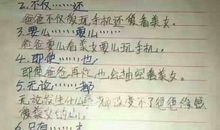 2.不仅……还
爸爸不仅爱玩手机还爱看美女。
3.要么……要么……
爸爸要么看美女要么玩手机。
4.即使……也
即使爸爸再忙也会抽空看美女。
5.无论……都
无论发生什么都改变不了爸爸
爱美女
6.只有